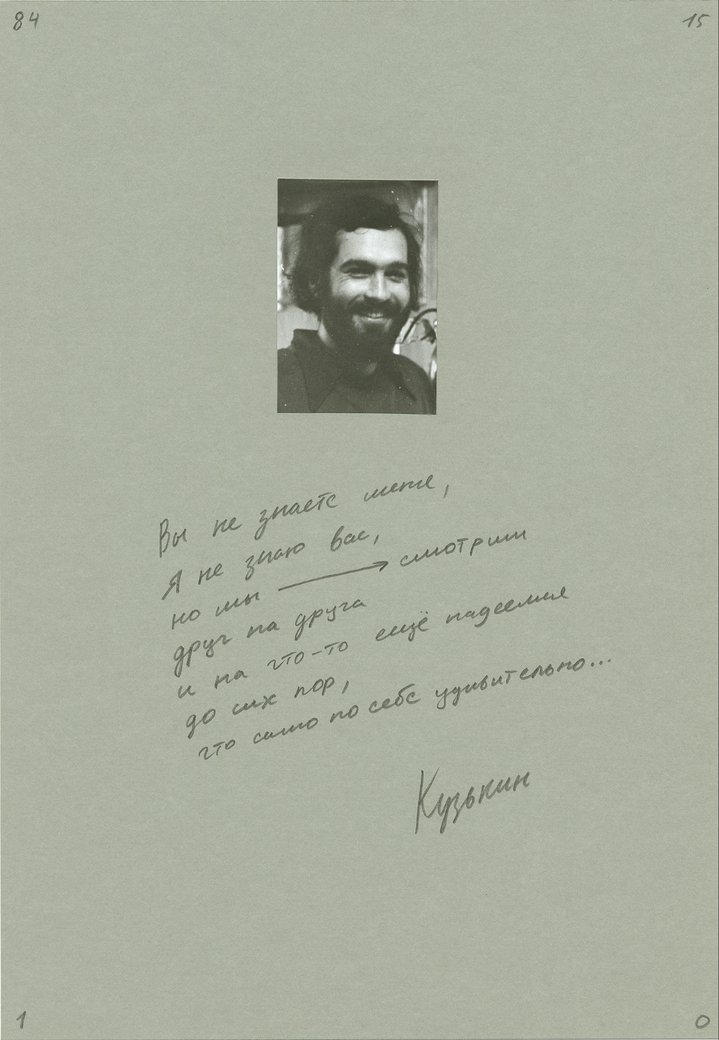 84
15
Вы не знаете меня,
Я не знаю вас,
но мы → смотрим
друг на друга
и на что-то ещё надеемся
до сих пор,
что само по себе удивительно...
Кузькин
1
0